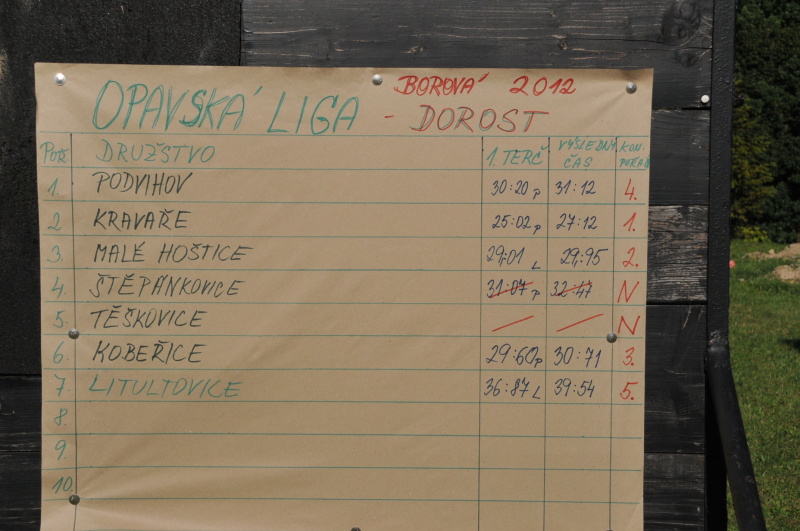 BOROVÁ 2012
OPAVSKÁ LIGA - DOROST
POŘ. DRUŽSTVO 1. TERČ VÝSLEDNÝ ČAS KON. POŘAD
1. PODVIHOV 30:20 P 31:12 4.
2 KRAVAŘE 25:02 P 27:12 1.
3. MALÉ HOŠTICE 29:01 L 29:95 2.
4. ŠTĚPÁNKOVICE 31:07 P 32:47 N
5. TĚŠKOVICE N
6. KOBEŘICE 29:60 P 30:71 3.
7. LITULTOVICE 36:87 L 39:54 5.
8.
9.
10.